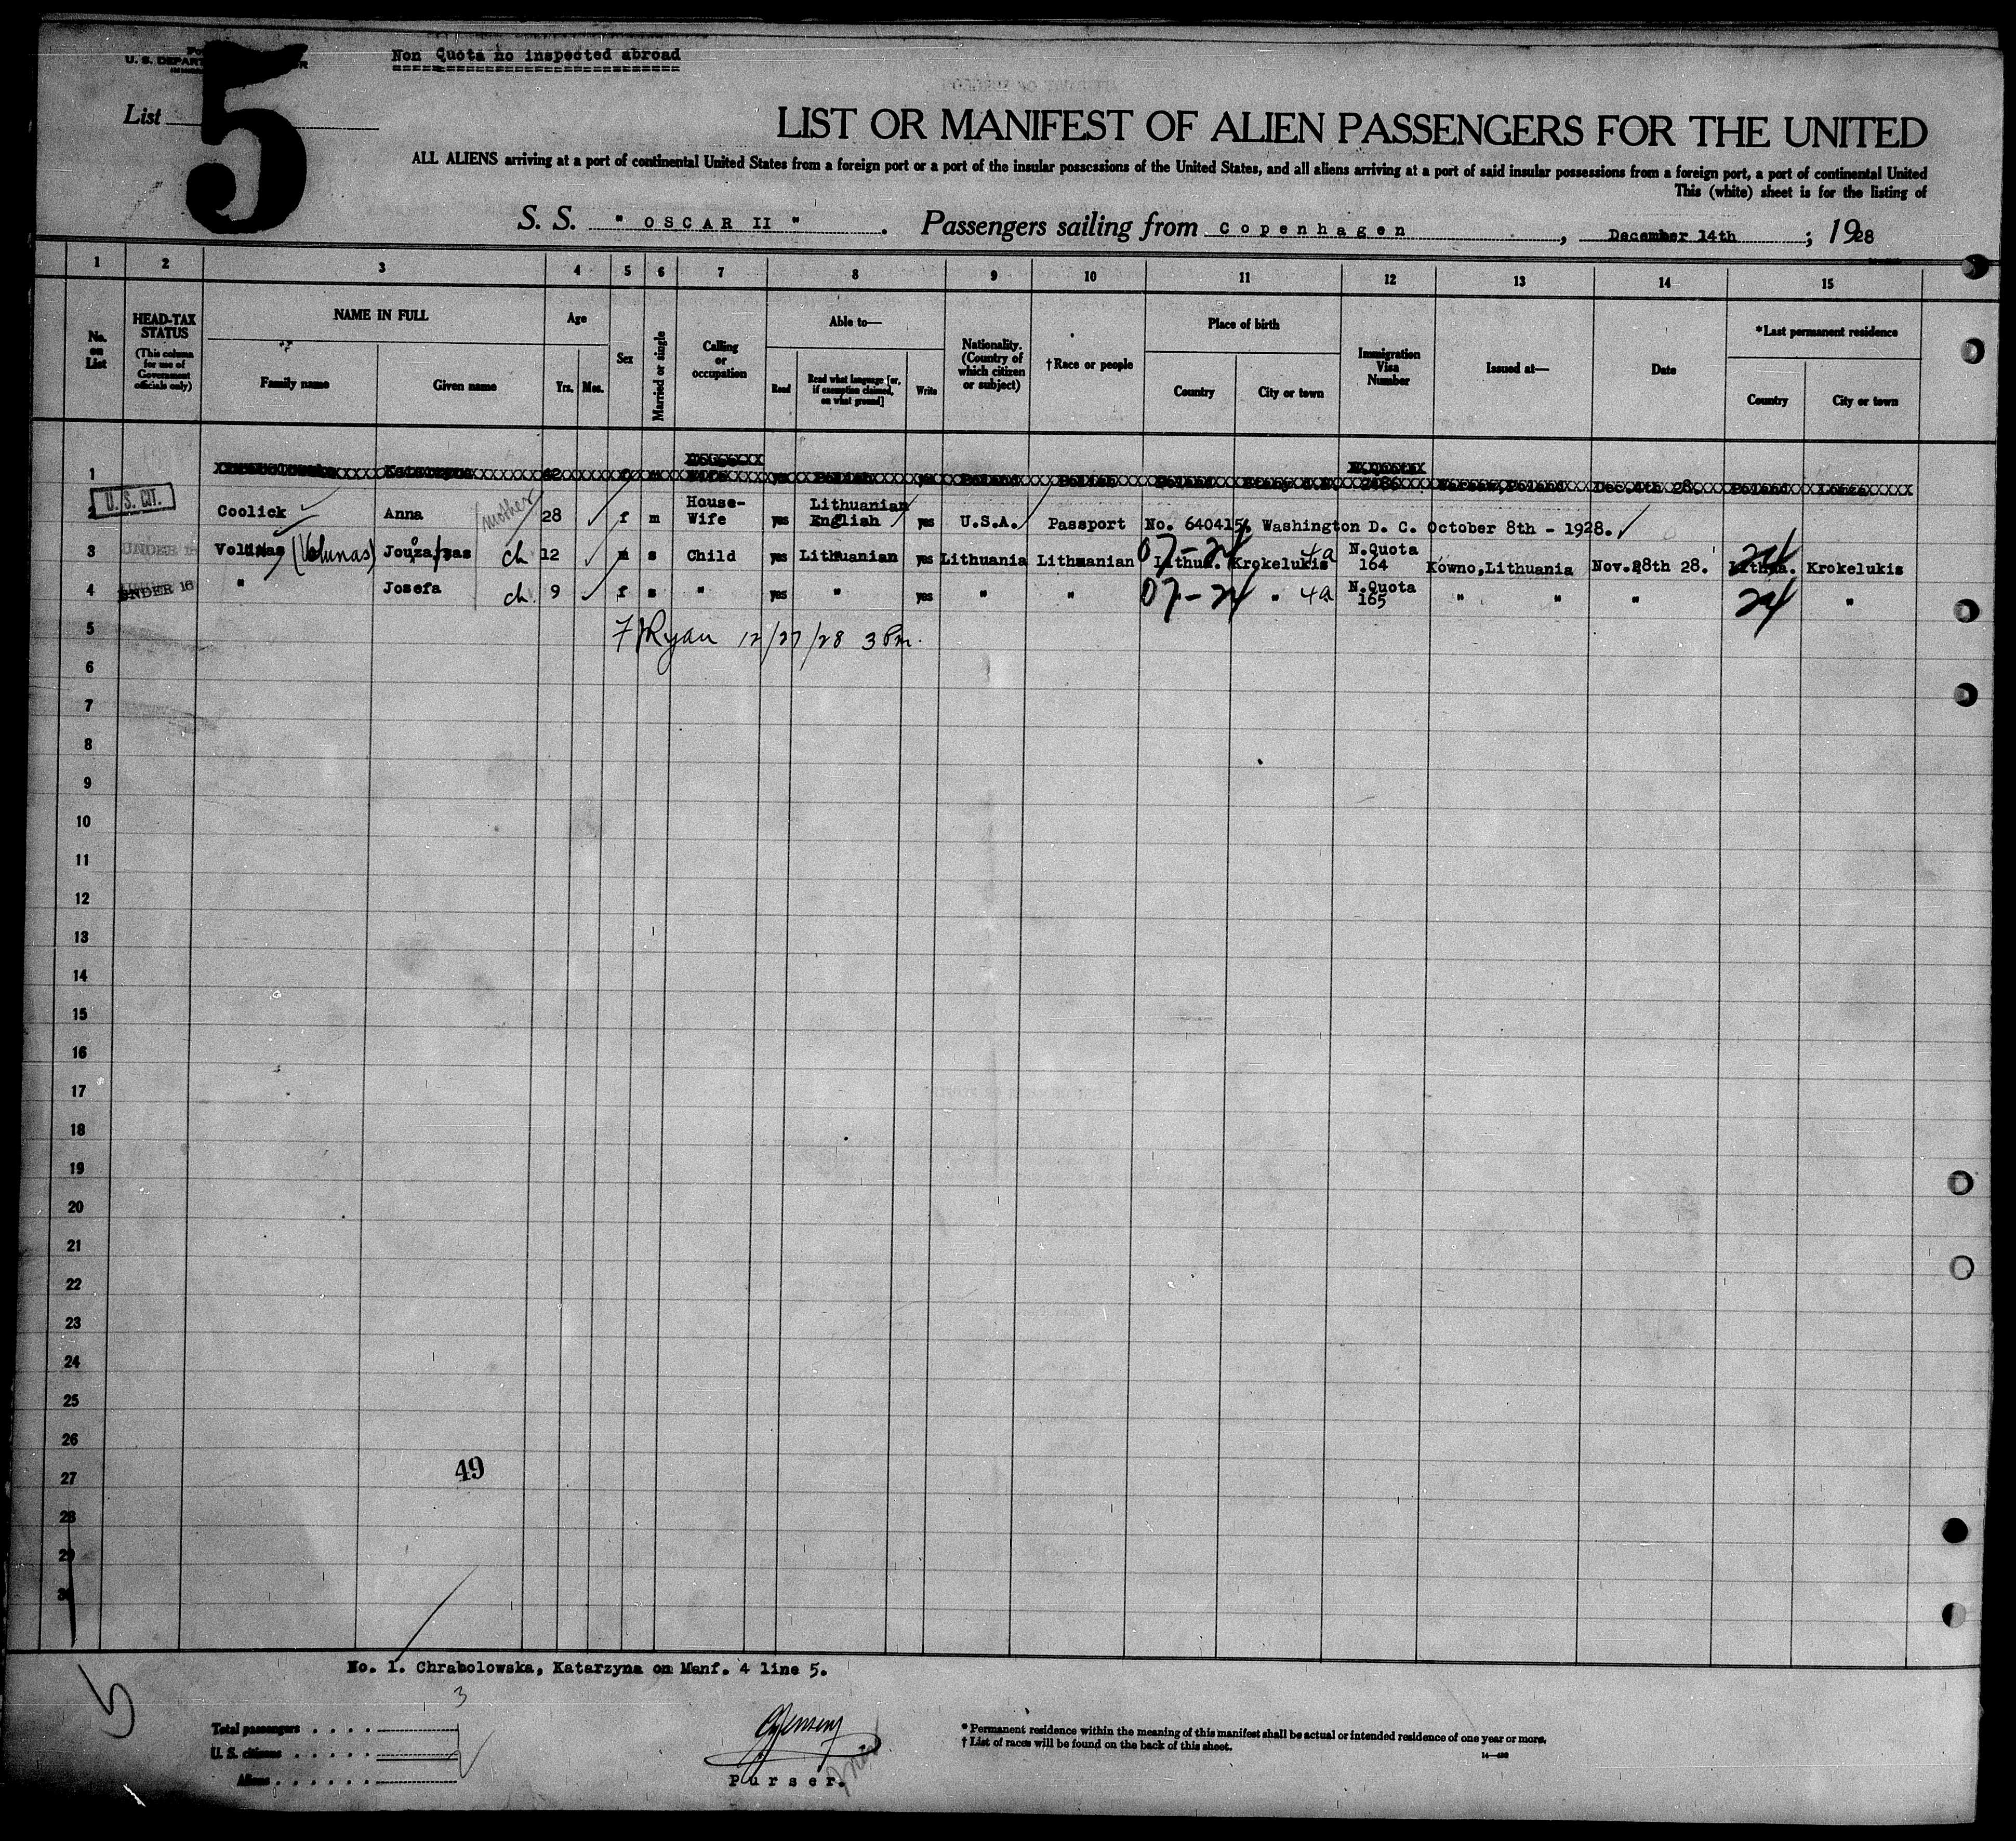 U. S. DEPAR
Non Quota no inspected abroad
List 5
LIST OR MANIFEST OF ALIEN PASSENGERS FOR THE UNITED
ALL ALIENS arriving at a port of continental United States from a foreign port or a port of the insular possessions of the United States, and all aliens arriving at a port of said insular possessions from a foreign port, a port of continental United
This (white) sheet is for the listing of
S. S. " OSCAR II " . Passengers sailing from Copenhagen , December 14th ; 1928
1 2 3 4 5 6 7 8 9 10 11 12 13 14 15
No. on List
HEAD-TAX STATUS (This column for use of Government officials only)
NAME IN FULL
Family name Given name
Age
Yrs. Mos.
Sex
Married or single
Calling or occupation
Able to—
Read Read what language [or, if exemption claimed, on what ground] Write
Nationality. (Country of which citizen or subject)
†Race or people
Place of birth
Country City or town
Immigration Visa Number
Issued at—
Date
*Last permanent residence
Country City or town
1
U. S. CIT. Coolick Anna mother 28 f m House-Wife yes Lithuanian English yes U.S.A. Passport No. 640415, Washington D. C. October 8th - 1928.
3 UNDER 16 (Volunas) ch 12 s Child yes Lithuanian yes Lithuania Lithuanian 07-24 Lithua. Krokelukis 4a N.Quota 164 Kowno,Lithuania Nov.28th 28. 24 Lithua. Krokelukis
4 UNDER 16 " Josefa ch 9 f s " yes " yes " " 07-24 " 4a N.Quota 165 " " " 24 "
5
F Ryan 12/27/28 3 Pm.
6
7
8
9
10
11
12
13
14
15
16
17
18
19
20
21
22
23
24
25
26
27
49
28
29
30
No. 1. Chrabolowska, Katarzyna on Manf. 4 line 5.
5
3
Total passengers . . . .
U. S. citizens . . . . .
Aliens . . . . . .
Purser.
* Permanent residence within the meaning of this manifest shall be actual or intended residence of one year or more.
† List of races will be found on the back of this sheet.